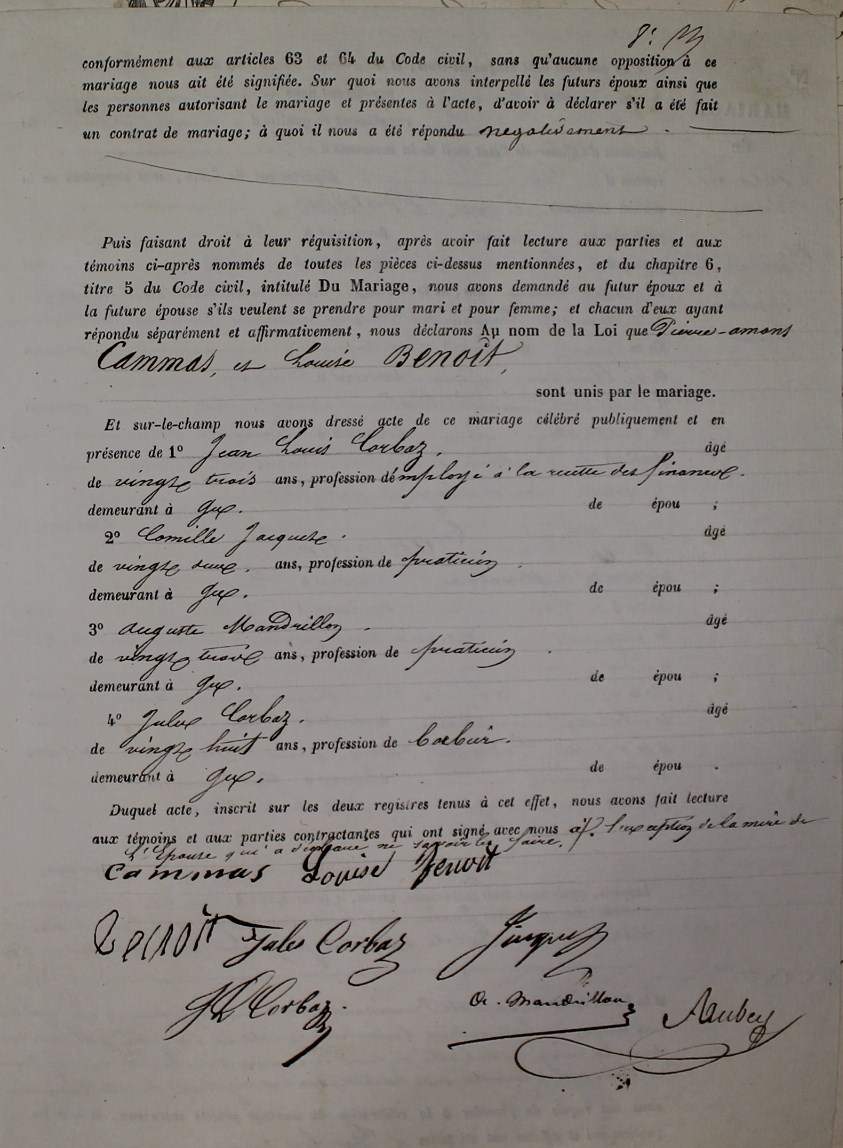 conformément aux articles 63 et 64 du Code civil, sans qu'aucune opposition à ce
mariage nous ait été signifiée. Sur quoi nous avons interpellé les futurs époux ainsi que
les personnes autorisant le mariage et présentes à l'acte, d'avoir à déclarer s'il a été fait
un contrat de mariage; à quoi il nous a été répondu négativement.
Puis faisant droit à leur réquisition, après avoir fait lecture aux parties et aux
témoins ci-après nommés de toutes les pièces ci-dessus mentionnées, et du chapitre 6,
titre 5 du Code civil, intitulé Du Mariage, nous avons demandé au futur époux et à
la future épouse s'ils veulent se prendre pour mari et pour femme; et chacun d'eux ayant
répondu séparément et affirmativement, nous déclarons Au nom de la Loi que Pierre-amans
Cammas, et Louise Benoît,
sont unis par le mariage.
Et sur-le-champ nous avons dressé acte de ce mariage célébré publiquement et en
présence de 1º Jean Louis Corbaz, âgé
de vingt trois ans, profession d'employé à la recette des finances.
demeurant à Gex. de épou ;
2º Camille Jacquet. âgé
de vingt deux. ans, profession de praticien
demeurant à Gex. de épou ;
3º auguste Mandrillon. âgé
de vingt trois ans, profession de praticien
demeurant à Gex. de épou ;
4º Jules Corbaz. âgé
de vingt huit ans, profession de
demeurant à Gex. de épou .
Duquel acte, inscrit sur les deux registres tenus à cet effet, nous avons fait lecture
aux témoins et aux parties contractantes qui ont signé avec nous à l'exception de la mère de
l'Epouse qui a déclaré ne savoir le faire.
Cammas Louise Benoit
Benoit Jules Corbaz Jacquet
JL Corbaz. A. Mandrillon